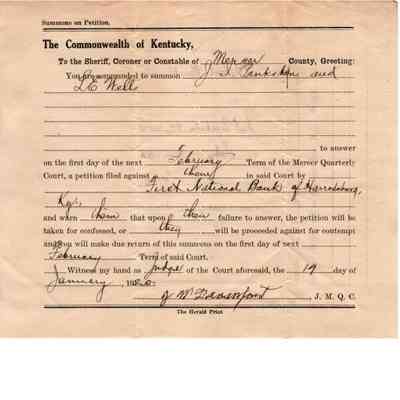 Summons on Petition.
The Commonwealth of Kentucky,
To the Sheriff, Coroner or Constable of Mercer County, Greeting:
You are commanded to summon J. and
L E Wells
to answer
on the first day of the next February Term of the Mercer Quarterly
Court, a petition filed against them in said Court by
First National Bank of Harrodsburg,
Ky.,
and warn them that upon their failure to answer, the petition will be
taken for confessed, or they will be proceeded against for contempt
and you will make due return of this summons on the first day of next
February Term of said Court.
Witness my hand as Judge of the Court aforesaid, the 19 day of
January, 19
J. M. Q. C.
The Herald Print